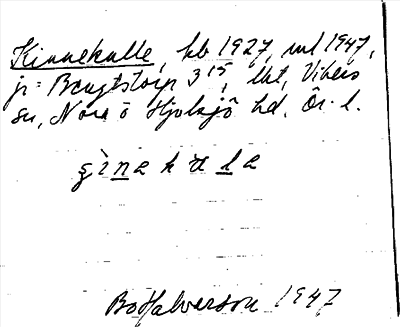 Kinnekulle, kb 1927, ml 1947,
jr = Bengtstorp 3¹⁵, lht, Vibers
sn, Nora o Hjulsjö hd, Ör. l.
ɕìnekɯle
Bo Halverson 1947